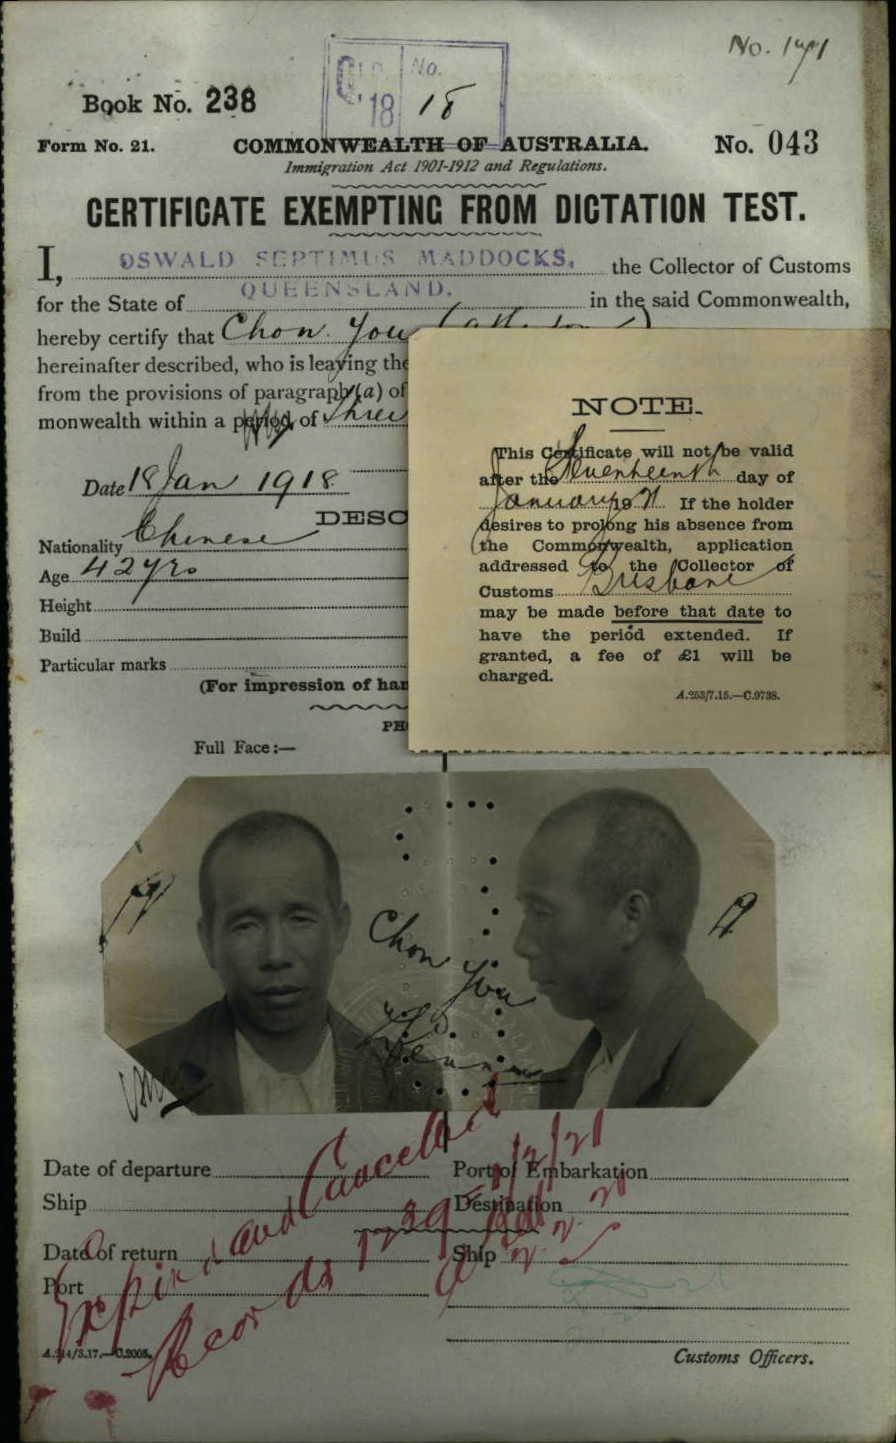 No. 171
No.
'18 18
Book No. 238
Form No. 21. COMMONWEALTH OF AUSTRALIA. No. 043
Immigration Act 1901-1912 and Regulations.
CERTIFICATE EXEMPTING FROM DICTATION TEST.
I, OSWALD SEPTIMUS MADDOCKS, the Collector of Customs
for the State of QUEENSLAND. in the said Commonwealth,
hereby certify that Chon You
hereinafter described, who is leaving the
from the provisions of paragraph (a) of
monwealth within a period of Three
Date 18 Jan 1918
DESC
Nationality Chinese
Age 42 yrs
Height
Build
Particular marks
(For impression of han
PH
Full Face:—
NOTE.
This Certificate will not be valid
after the Seventeenth day of
January 1921 If the holder
desires to prolong his absence from
the Commonwealth, application
addressed to the Collector of
Customs Brisbane
may be made before that date to
have the period extended. If
granted, a fee of £1 will be
charged.
A.253/7.15.—C.9738.
Chon You
Date of departure Port of Embarkation
Ship Destination
Date of return Ship
Port
Expired and Cancelled
Records
A.214/3.17.—C.2005.
Customs Officers.